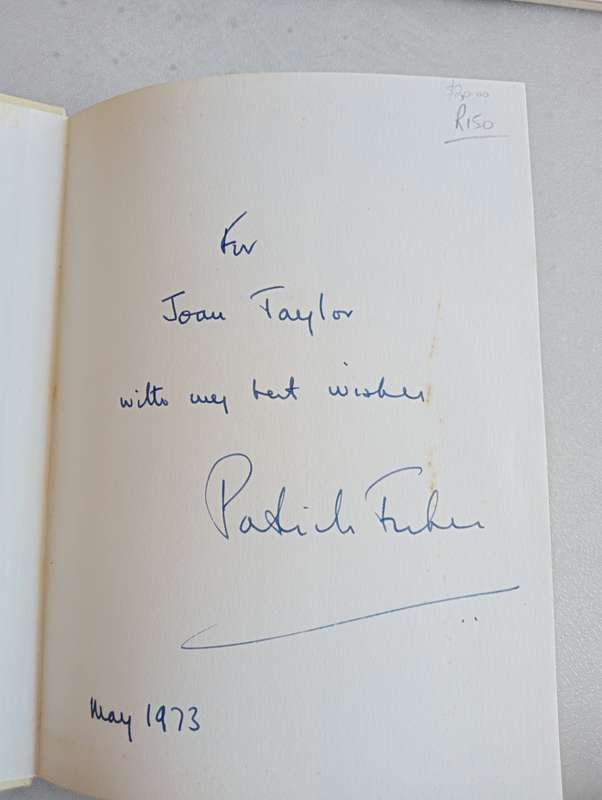 R150
For
Joan Taylor
with my best wishes
Patrick
May 1973